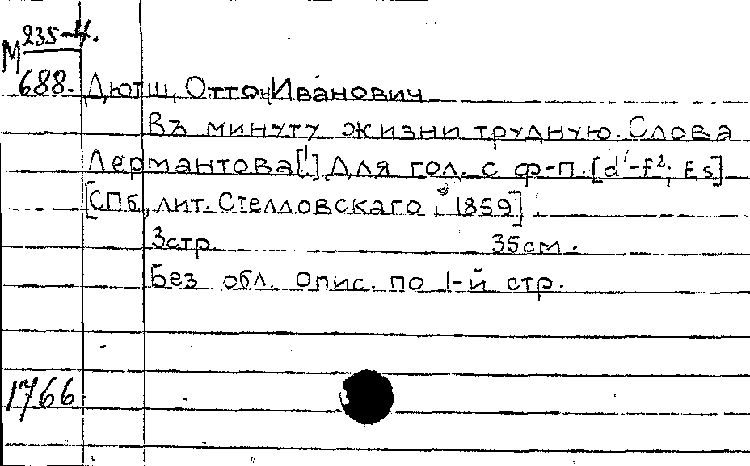 М 235-4.
688. Дютш, Отто Иванович
Въ минуту жизни трудную. Слова
Лермантова[!] Для гол. с ф-п. [d¹-f²; Es]
[СПб., лит. Стелловскаго, 1859]
3 стр. 35 см.
Без обл. Опис. по 1-й стр.
1766